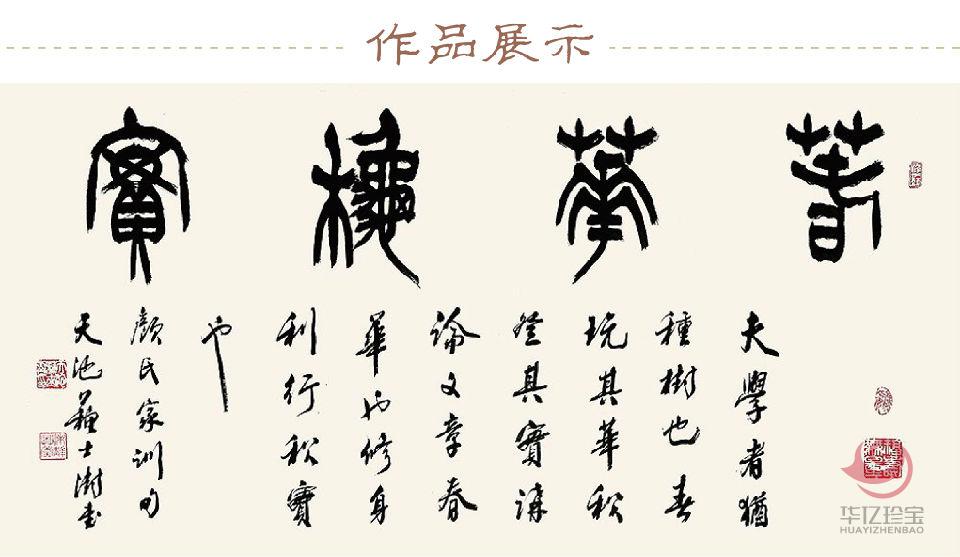 作品展示
萅華龝實
夫學者猶
種樹也春
玩其華秋
登其實講
論文章春
華也修身
利行秋實
也
顏氏家訓句
天池蘇士澍書
华亿珍宝
HUAYIZHENBAO